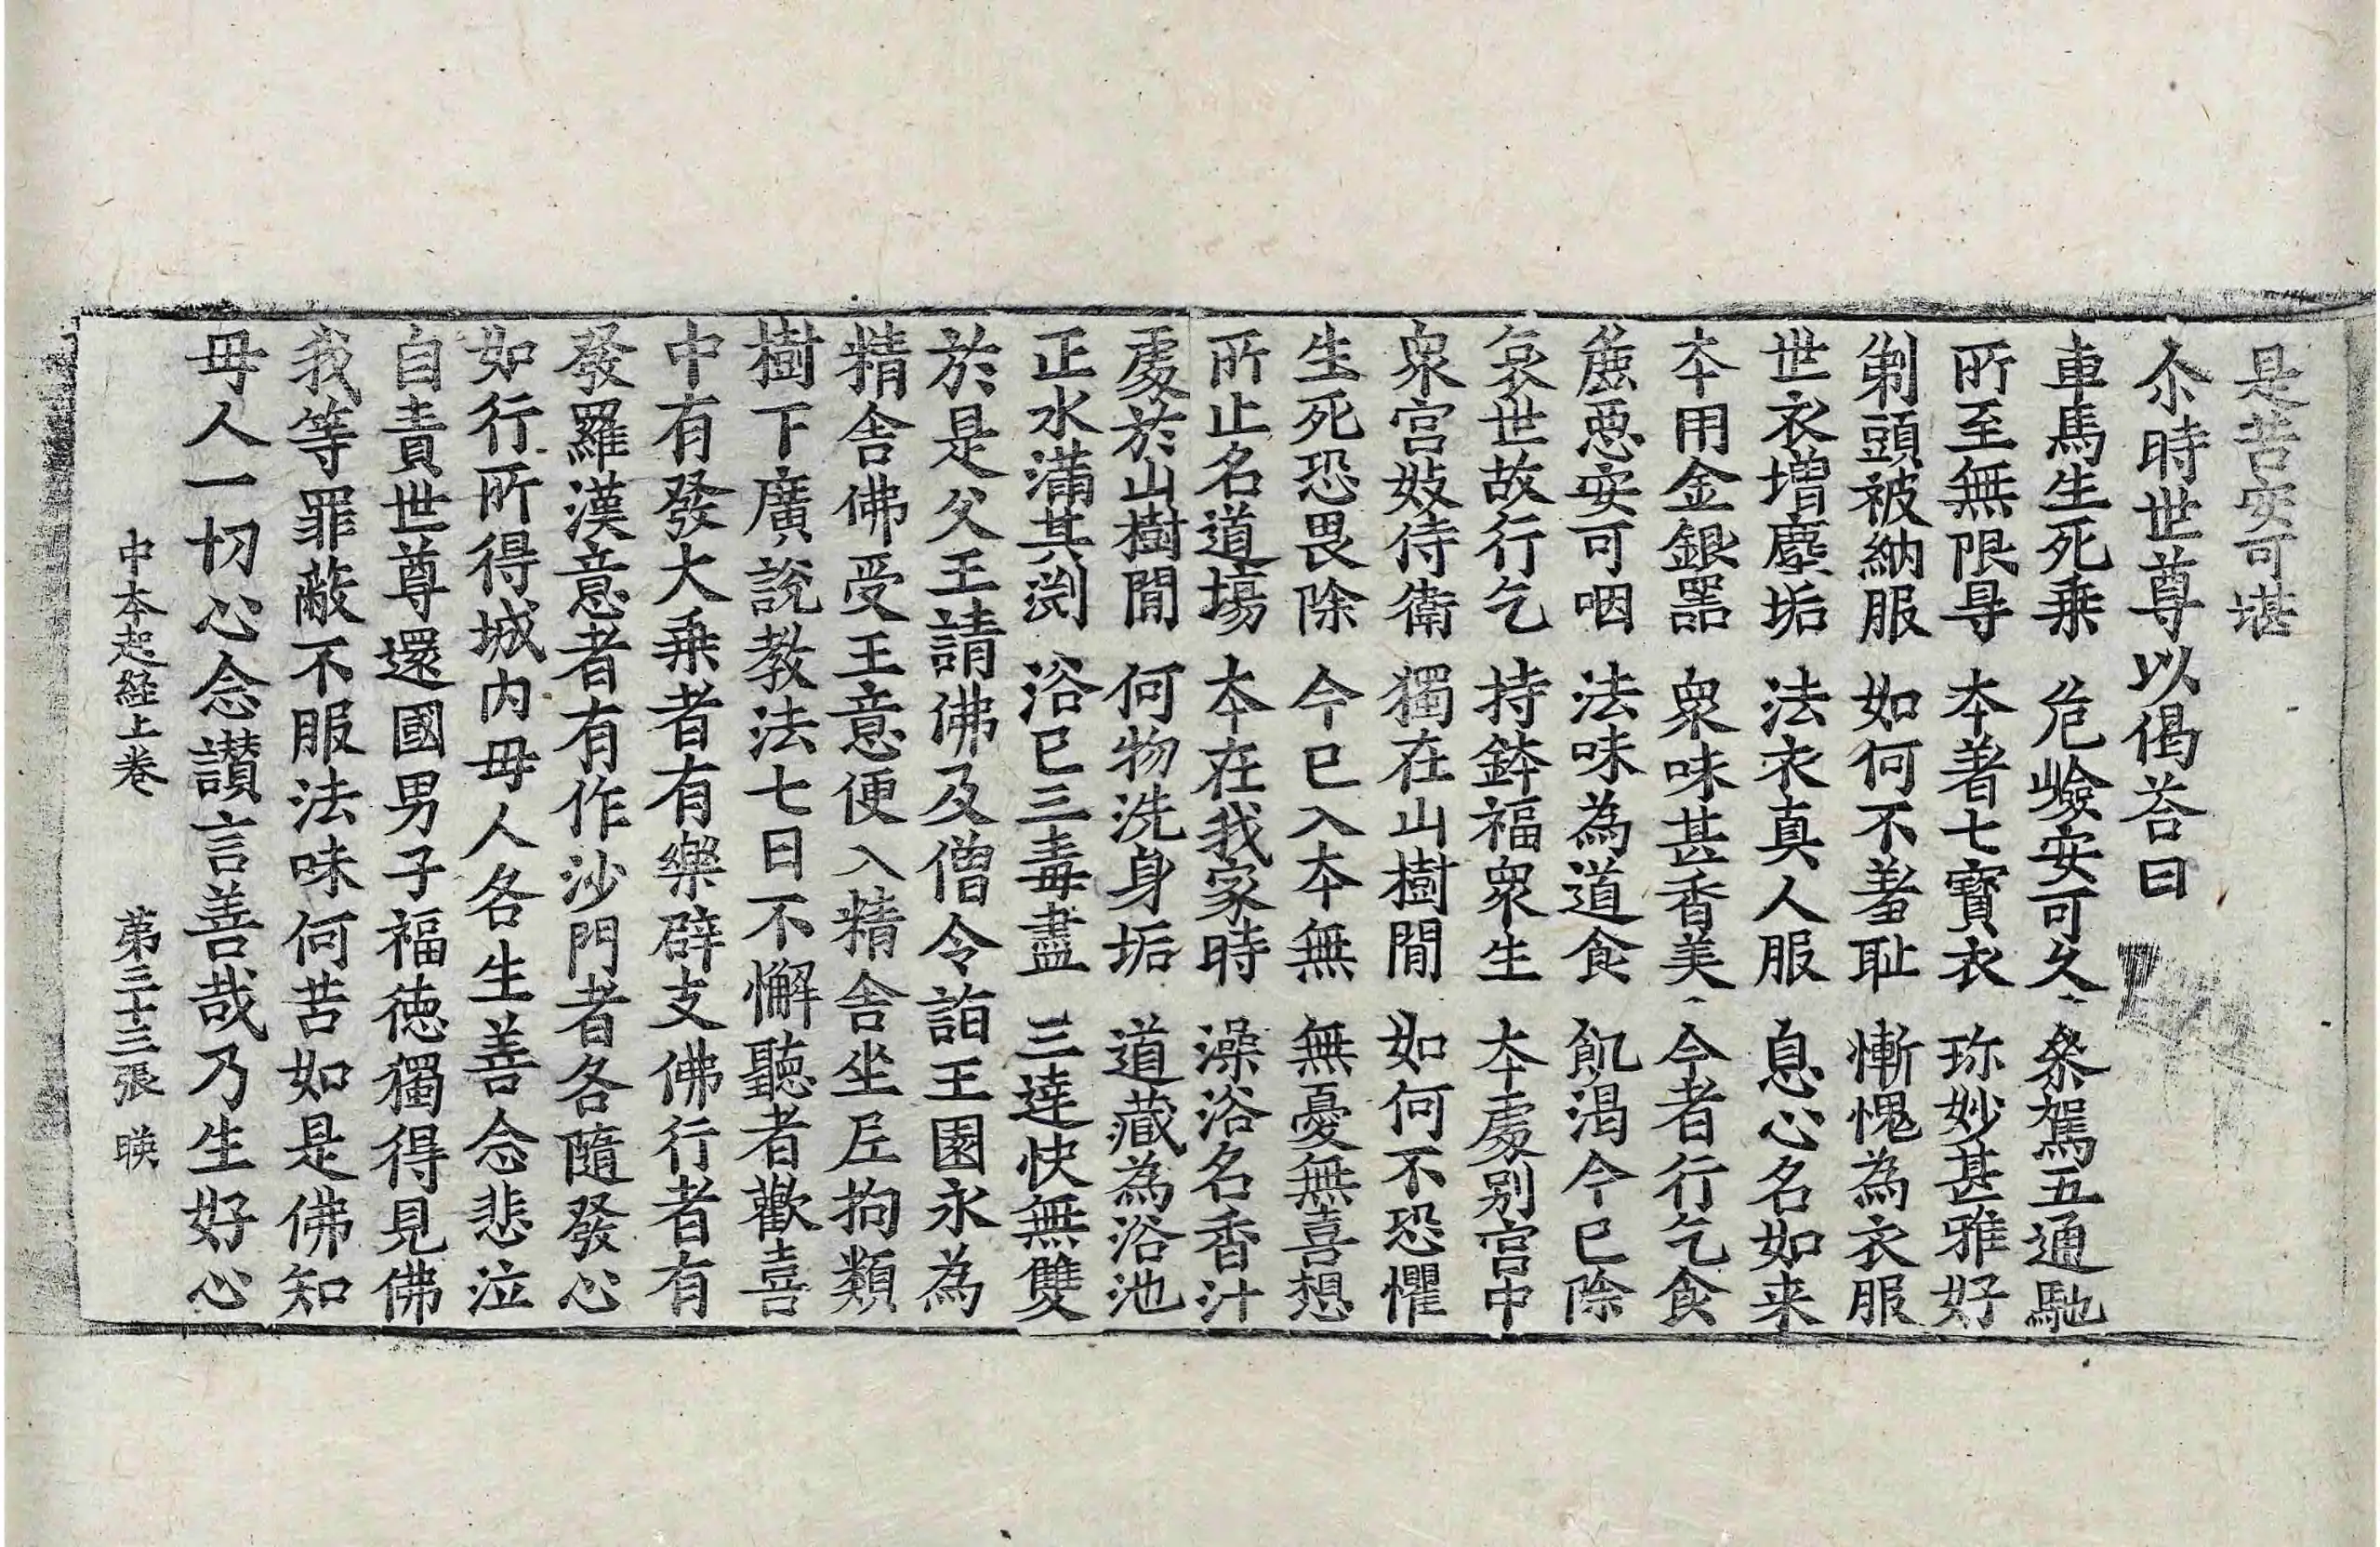 是苦安可堪
尒時世尊以偈荅曰
車馬生死乗　危嶮安可久　叅駕五通馳
所至無限㝵　本著七寶衣　珎妙甚雅好
剃頭被納服　如何不羞耻　慚愧為衣服
世衣增塵垢　法衣真人服　息心名如来
本用金銀器　衆味甚香美　今者行乞食
麁惡安可咽　法味為道食　飢渴今已除
哀世故行乞　持鉢福衆生　本處別宮中
衆宮妓侍衛　獨在山樹閒　如何不恐懼
生死恐畏除　今已入本無　無憂無喜想
所止名道場　本在我家時　澡浴名香汁
處於山樹閒　何物洗身垢　道藏為浴池
正水滿其渕　浴已三毒盡　三達快無雙
於是父王請佛及僧令詣王園永為
精舍佛受王意便入精舍坐㞐拘類
樹下廣說教法七日不懈聽者歡喜
中有發大乗者有樂辟支佛行者有
發羅漢意者有作沙門者各隨發心
如行所得城內母人各生善念悲泣
自責世尊還國男子福德獨得見佛
我等罪蔽不服法味何苦如是佛知
母人一切心念讚言善哉乃生好心
中本起經上卷　第三十三張　暎